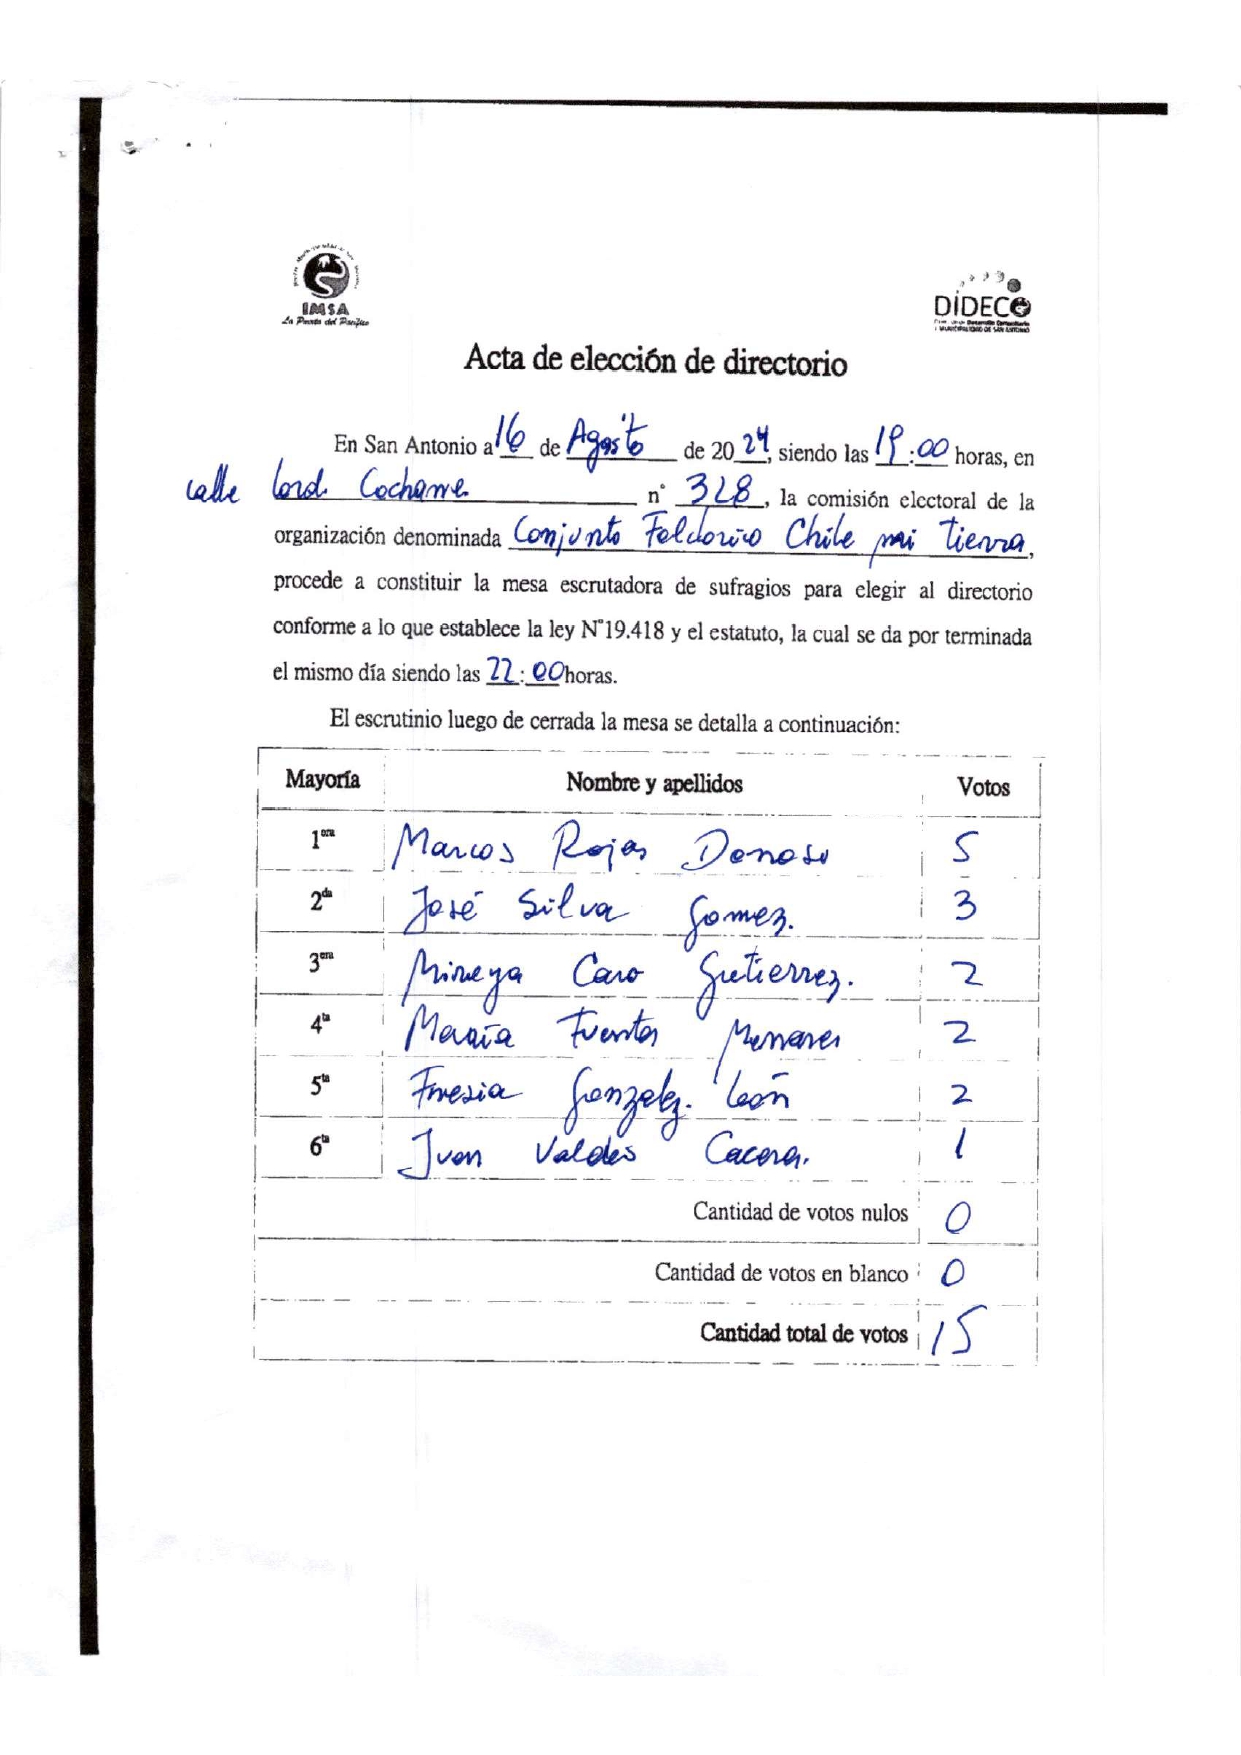 IMSA
La Puerta del Pacífico
DIDECO
Acta de elección de directorio
En San Antonio a 16 de Agosto de 2024, siendo las 19:00 horas, en
calle Lord Cochane n° 328, la comisión electoral de la
organización denominada Conjunto Folclorico Chile mi tierra,
procede a constituir la mesa escrutadora de sufragios para elegir al directorio
conforme a lo que establece la ley N°19.418 y el estatuto, la cual se da por terminada
el mismo día siendo las 22:00 horas.
El escrutinio luego de cerrada la mesa se detalla a continuación:
Mayoría Nombre y apellidos Votos
1era Marcos Rojas Donoso 5
2da José Silva Gomez. 3
3era Mireya Caro Gutierrez. 2
4ta María Fuentes Menares 2
5ta Fresia Gonzalez. León 2
6ta Juan Valdés Cacera. 1
Cantidad de votos nulos 0
Cantidad de votos en blanco 0
Cantidad total de votos 15